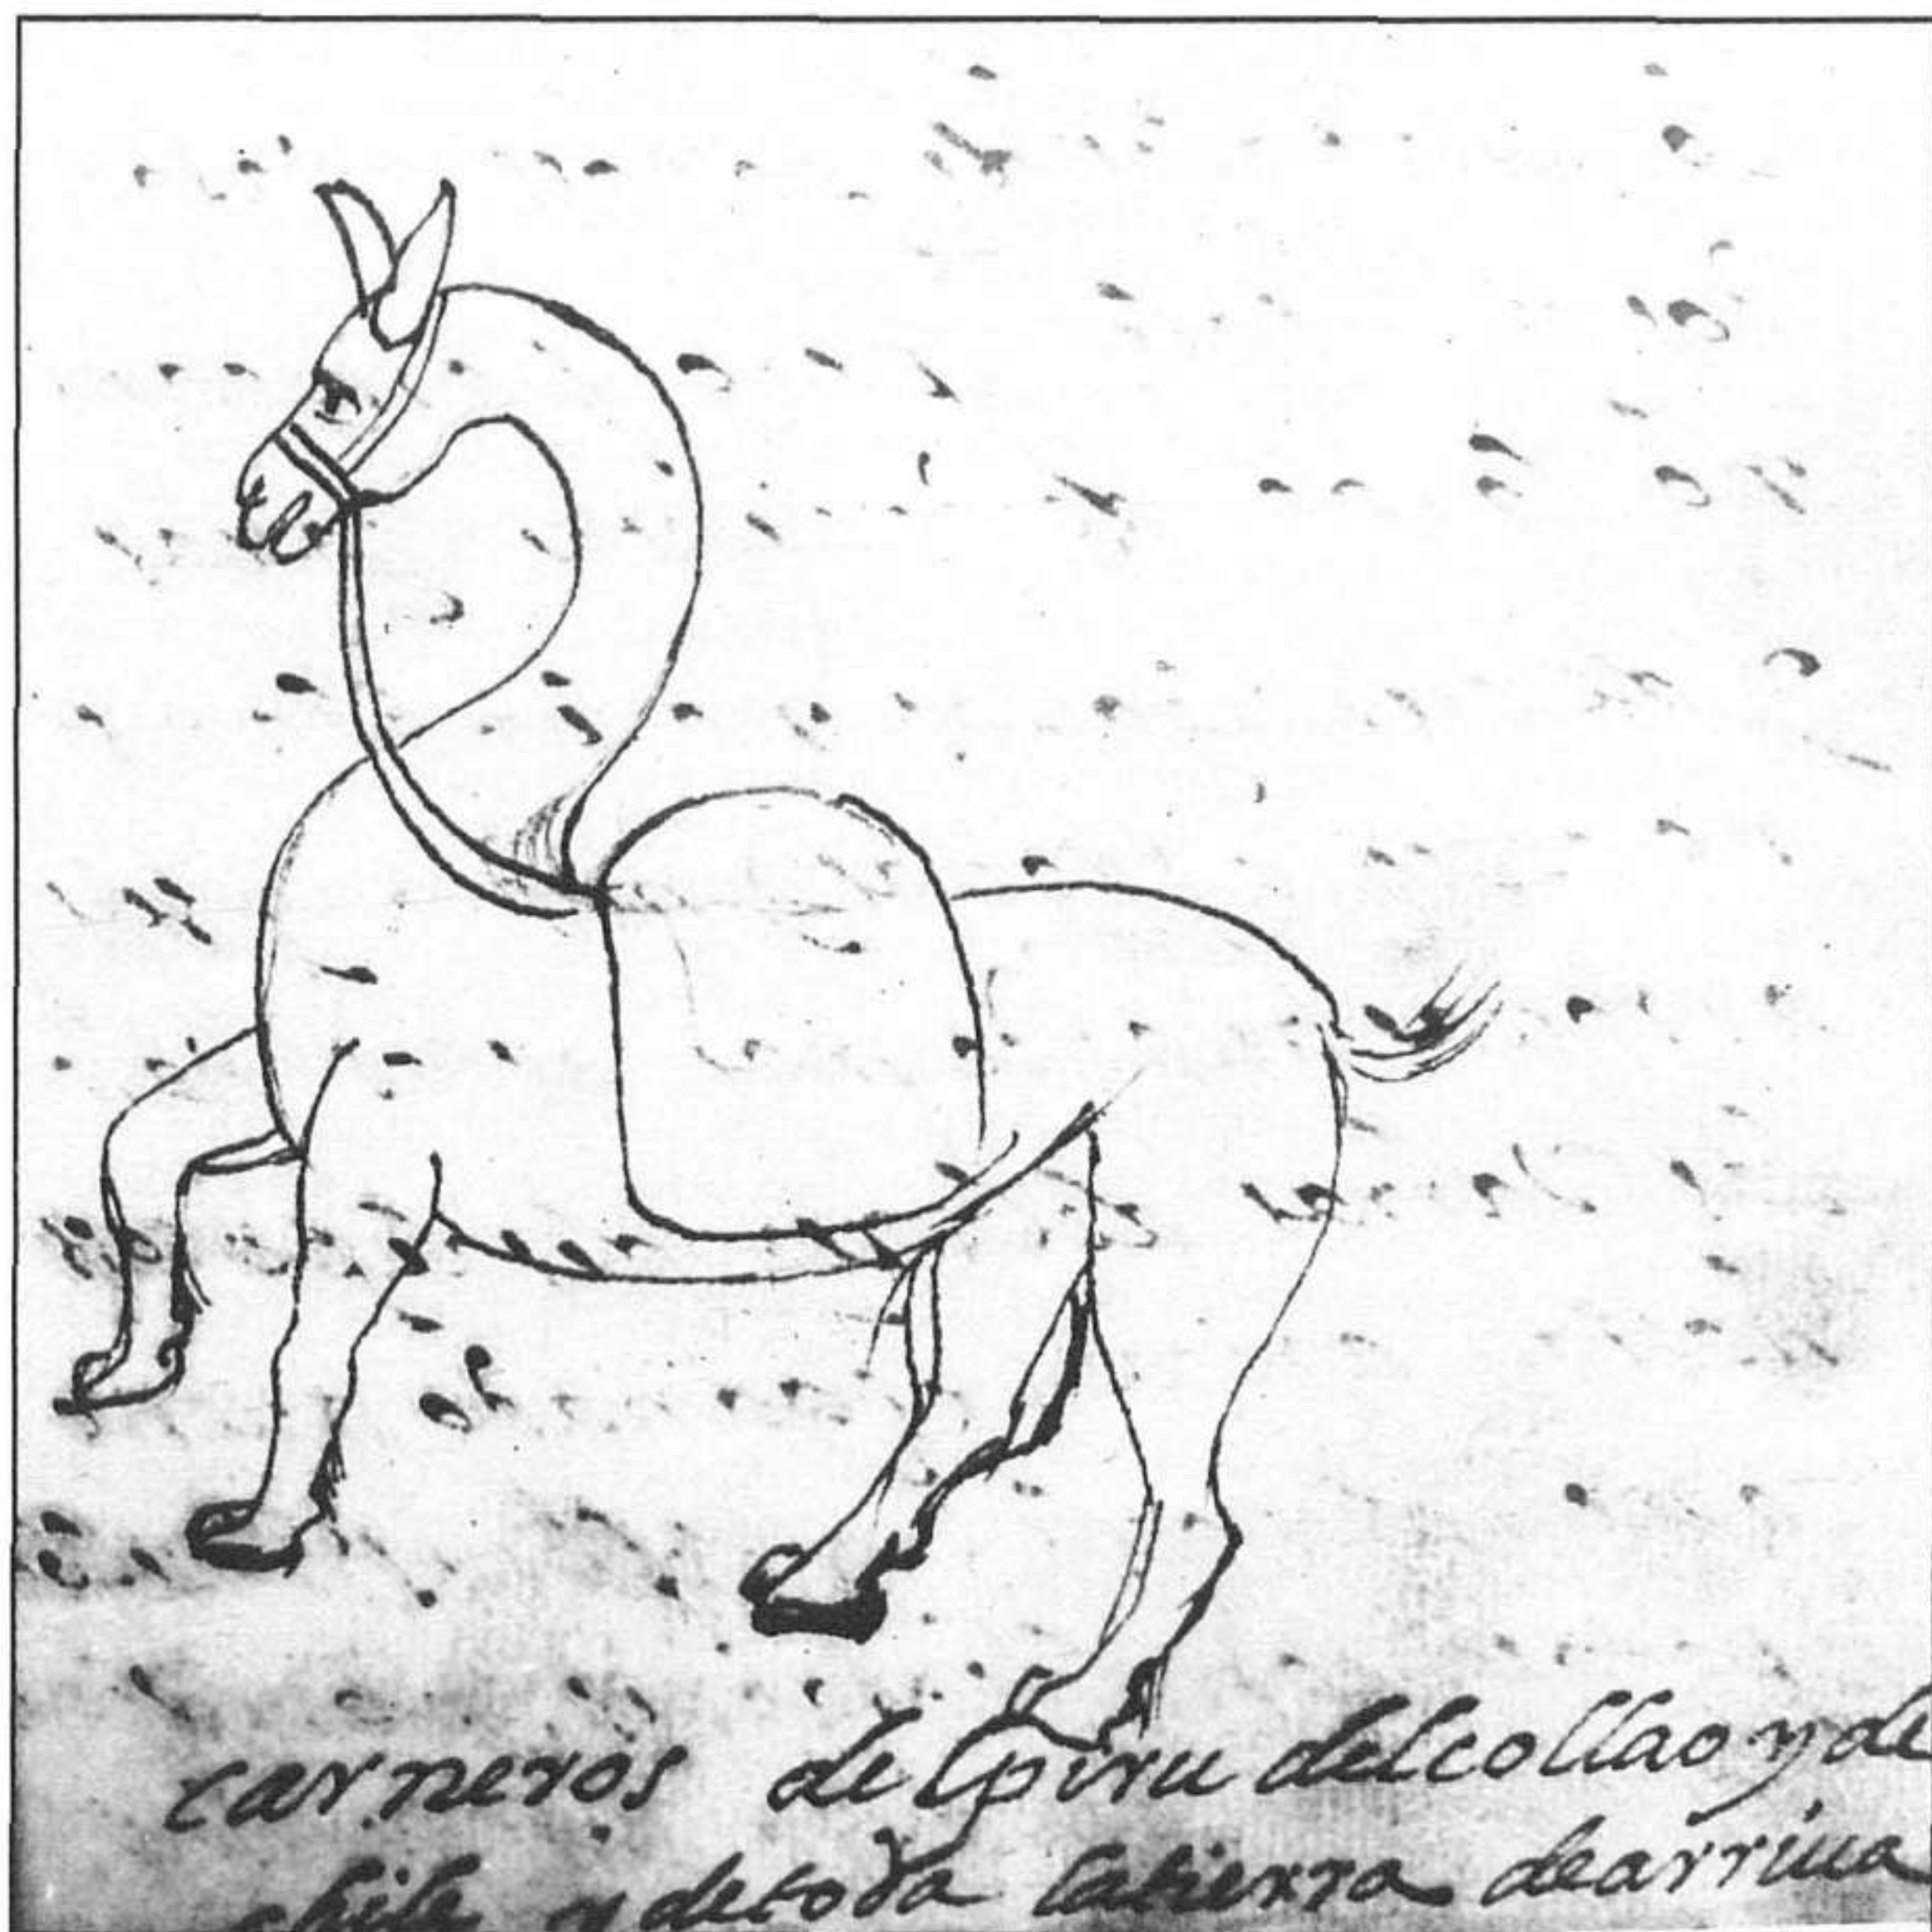 carneros del piru delcollao y de
chile y detoda latierra dearriua